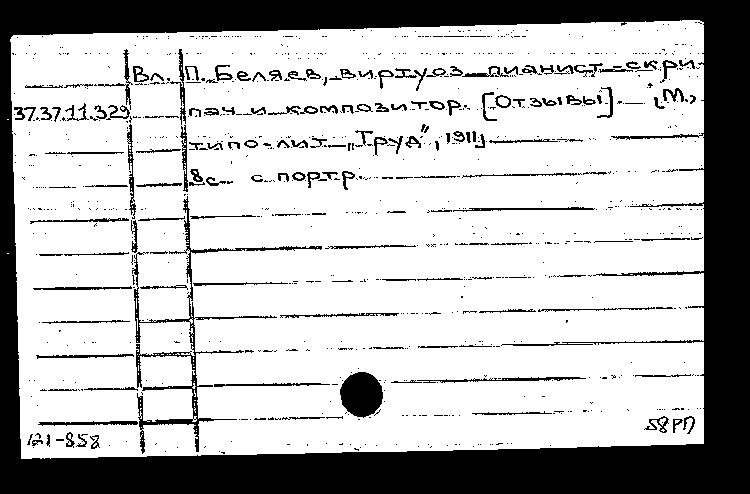 Вл. П. Беляев, виртуоз пианист-скри-
37.37.11.329 пач и композитор. [Отзывы]. [М.,
типо-лит. „Труд", 1911]
8с. с портр.
121-858
58РП